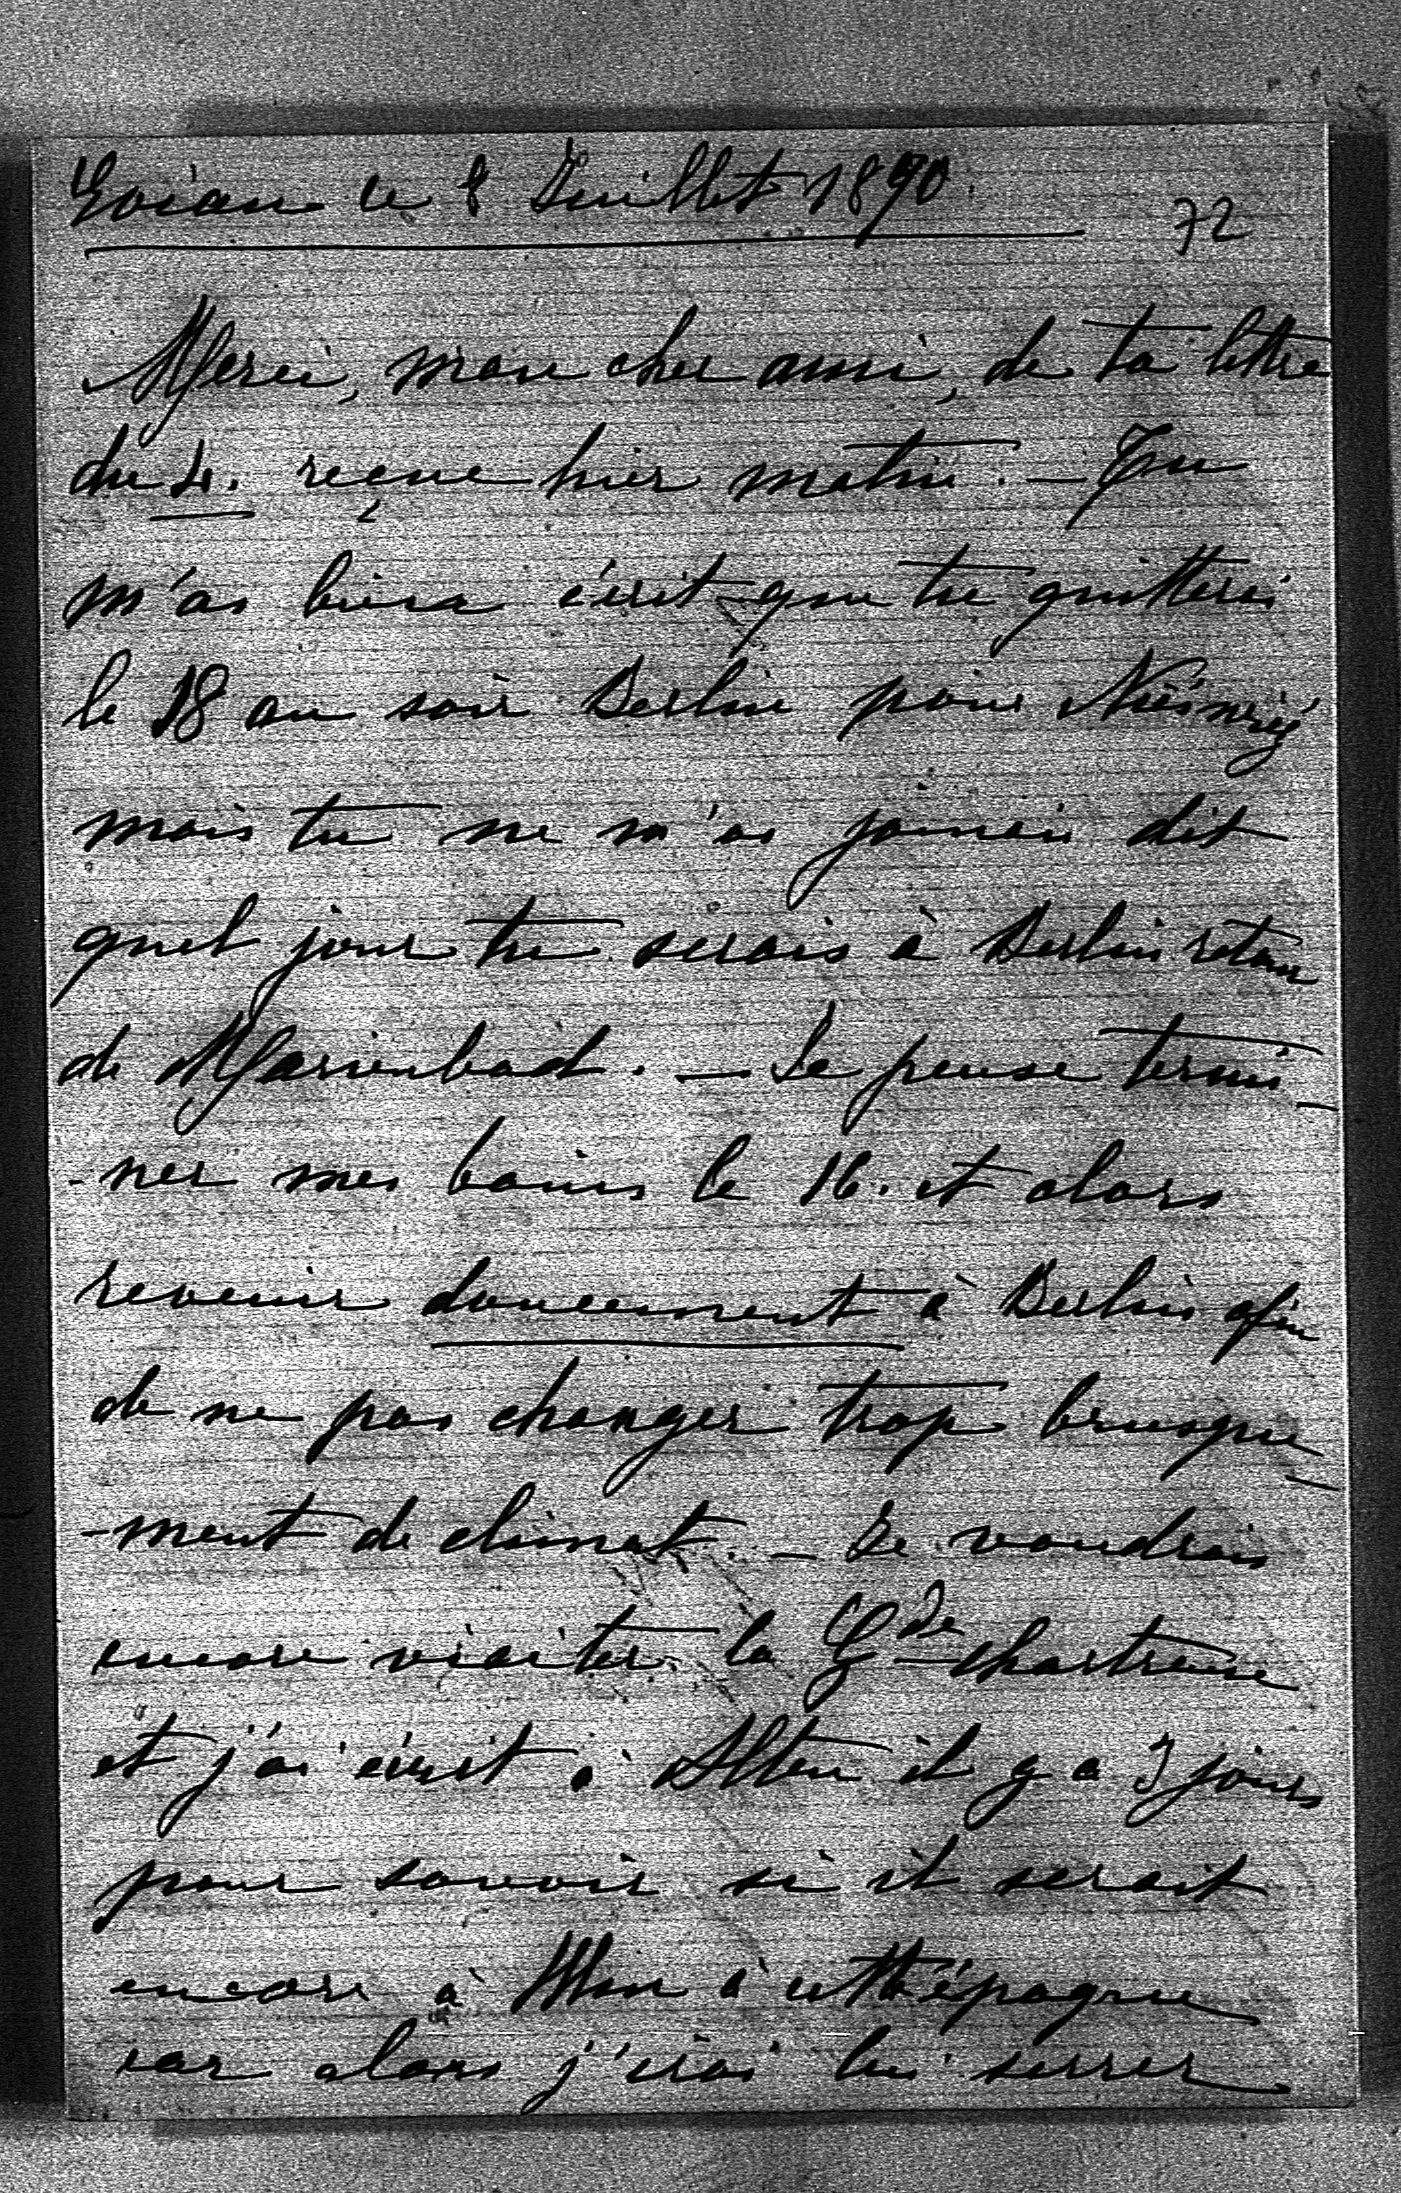 Evian le 8 Juillet 1890.
72
Merci, mon cher ami, de ta lettre
du 4. reçue hier matin. — Tu
m'as bien écrit que tu quitterais
le 18 au soir Berlin pour
mais tu ne m'as jamais dit
quel jour tu serais à Berlin retour
de Marienbad. — Je pense termi-
-ner mes bains le 16. et alors
revenir doucement à Berlin afin
de ne pas changer trop brusque-
-ment de climat. — Je voudrais
encore visiter la Gde Chartreuse
et j'ai écrit à Alten il y a 3 jours
pour savoir si il serait
encore à à cette époque
car alors j'irai lui serrer